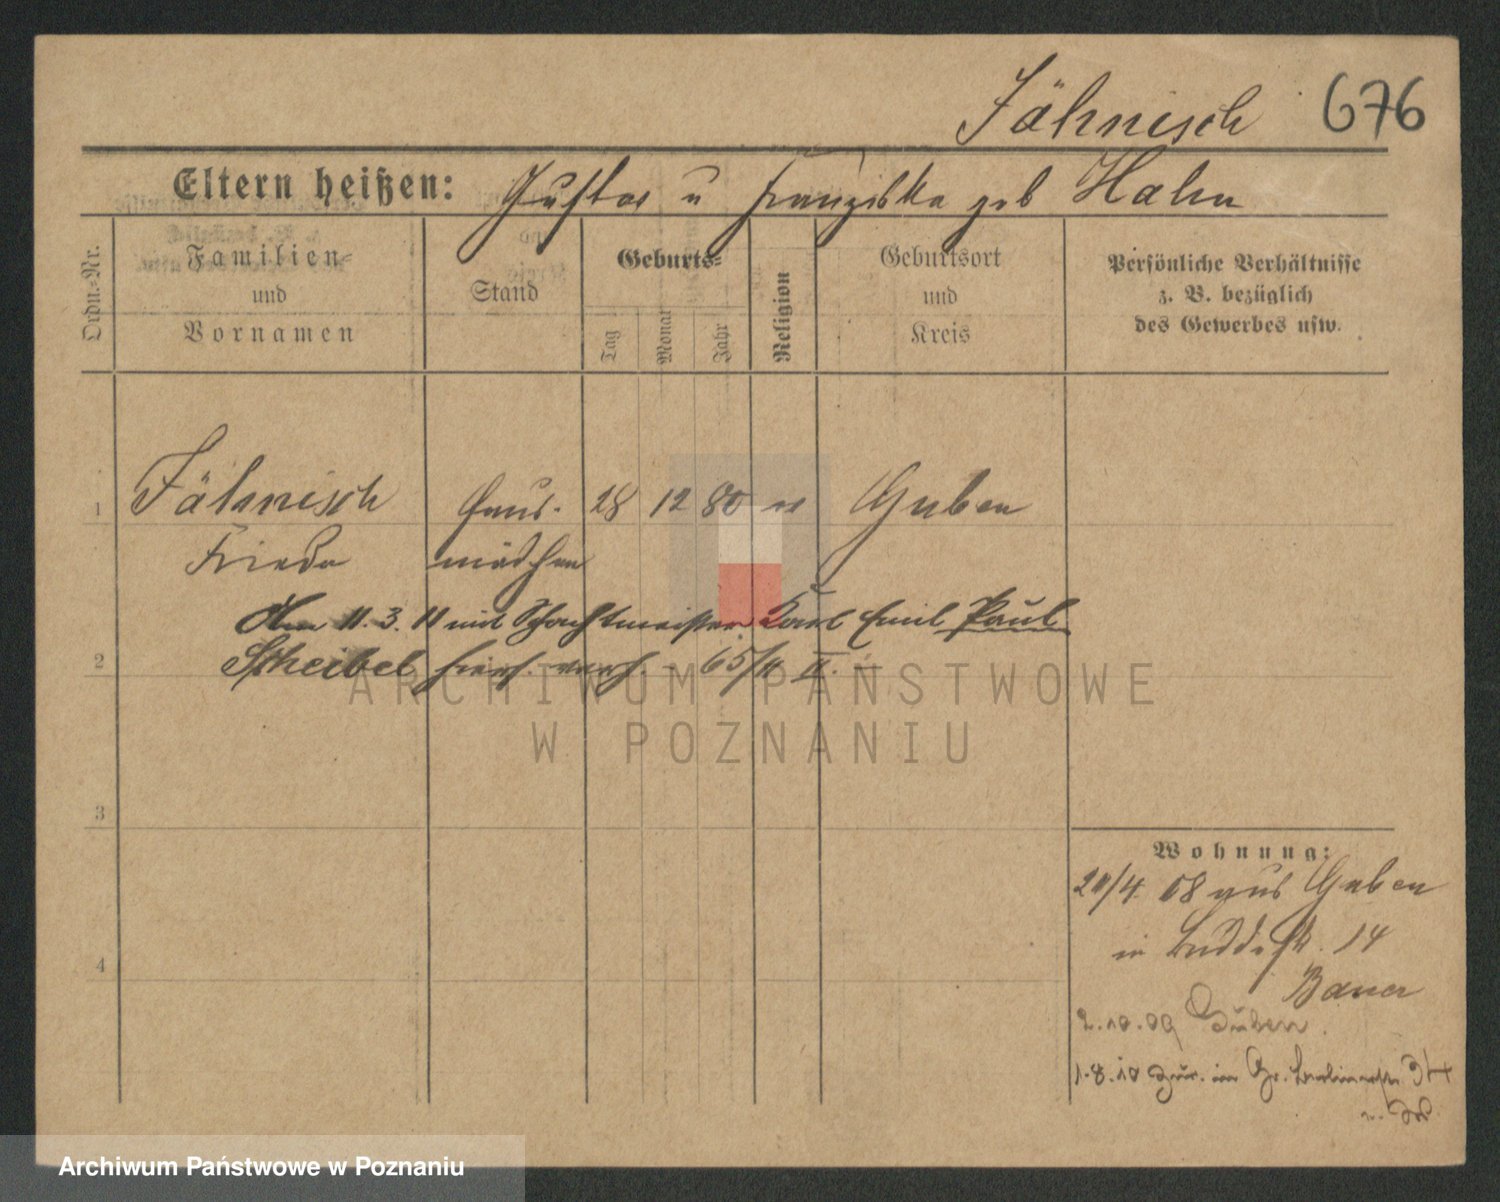 Jähnisch 676
Eltern heißen: Gustav u Franziska geb Hahn
Ordn.-Nr.
Familien-
und
Vornamen
Stand
Geburts-
Tag
Monat
Jahr
Religion
Geburtsort
und
Kreis
Persönliche Verhältnisse
z. B. bezüglich
des Gewerbes usw.
1 Jähnisch Haus- 28 12 80 Guben
Frieda mädchen
Am 11. 3. 11 mit Schachtmeister Karl Emil Paul
2 Scheibel hier verh. 65/11 II.
3
4
Wohnung:
20/4. 08 aus Guben
in 14
Bauer
2.10.09 Guben.
1.8.10 zur. in Gr. Berlinerstr 34
ARCHIWUM PAŃSTWOWE
W POZNANIU
Archiwum Państwowe w Poznaniu